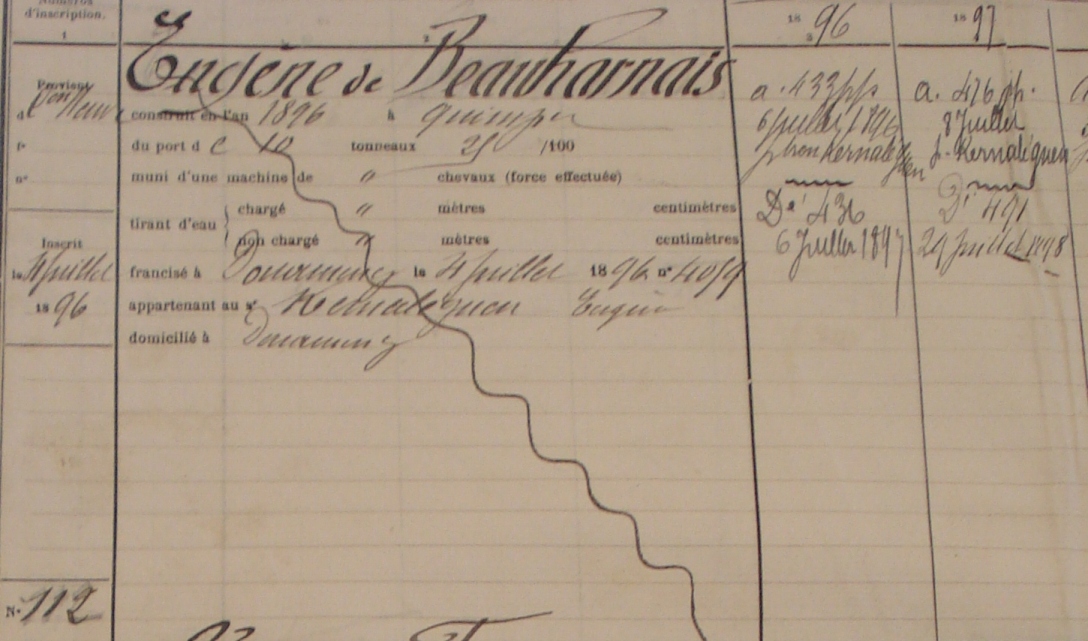 Numéros
d'inscription.
1
2
Eugène de Beauharnais
Provient
d
construit en l'an 1896 à Quimper
fo
du port de 10 tonneaux 25 /100
no
muni d'une machine de " chevaux (force effectuée)
tirant d'eau
chargé " mètres centimètres
non chargé " mètres centimètres
Inscrit
le 4 juillet
1896
francisé à Douarnenez le 4 juillet 1896 no 4059
appartenant au sr Kernaléguen Eugène
domicilié à Douarnenez
N. 112
1896
3
a. 433 pp
6 juillet 1896
p. bon Kernaléguen
Dé 436
6 Juillet 1897
1897
a. 476 pp.
8 Juillet
p. Kernaléguen
Dé 491
29 juillet 1898